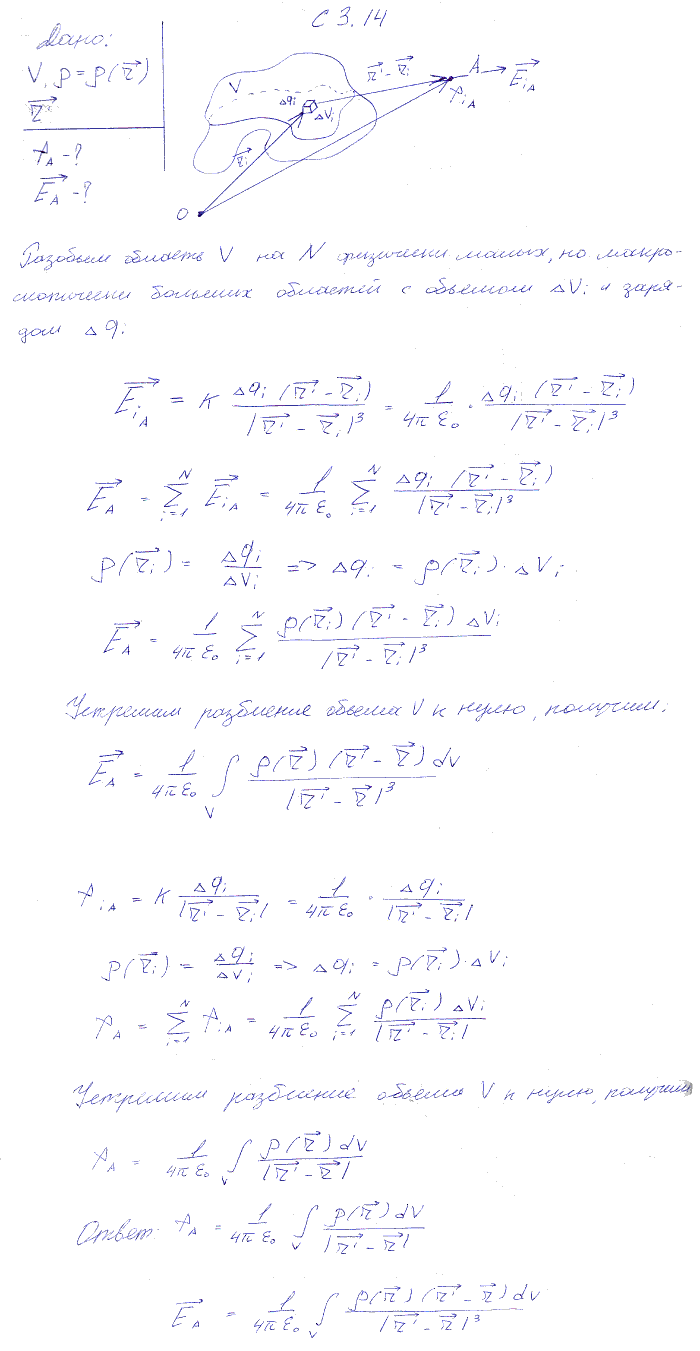 С 3.14
Дано:
V, ρ = ρ(r⃗)
r⃗
φ_A - ?
E⃗_A - ?
V Δq_i ΔV_i r⃗_i O r⃗' - r⃗_i A φ_iA E⃗_iA
Разобьем область V на N физически малых, но макро-
скопически больших областей с объемом ΔV_i и заря-
дом Δq_i
E⃗_iA = K Δq_i (r⃗' - r⃗_i) / |r⃗' - r⃗_i|³ = 1/(4πε₀) · Δq_i (r⃗' - r⃗_i) / |r⃗' - r⃗_i|³
E⃗_A = Σ_{i=1}^{N} E⃗_iA = 1/(4πε₀) Σ_{i=1}^{N} Δq_i (r⃗' - r⃗_i) / |r⃗' - r⃗_i|³
ρ(r⃗_i) = Δq_i / ΔV_i => Δq_i = ρ(r⃗_i) · ΔV_i
E⃗_A = 1/(4πε₀) Σ_{i=1}^{N} ρ(r⃗_i) (r⃗' - r⃗_i) ΔV_i / |r⃗' - r⃗_i|³
Устремим разбиение объема V к нулю, получим:
E⃗_A = 1/(4πε₀) ∫_V ρ(r⃗) (r⃗' - r⃗) dV / |r⃗' - r⃗|³
φ_iA = K Δq_i / |r⃗' - r⃗_i| = 1/(4πε₀) · Δq_i / |r⃗' - r⃗_i|
ρ(r⃗_i) = Δq_i / ΔV_i => Δq_i = ρ(r⃗_i) · ΔV_i
φ_A = Σ_{i=1}^{N} φ_iA = 1/(4πε₀) Σ_{i=1}^{N} ρ(r⃗_i) ΔV_i / |r⃗' - r⃗_i|
Устремим разбиение объема V к нулю, получим
φ_A = 1/(4πε₀) ∫_V ρ(r⃗) dV / |r⃗' - r⃗|
Ответ: φ_A = 1/(4πε₀) ∫_V ρ(r⃗) dV / |r⃗' - r⃗|
E⃗_A = 1/(4πε₀) ∫_V ρ(r⃗) (r⃗' - r⃗) dV / |r⃗' - r⃗|³